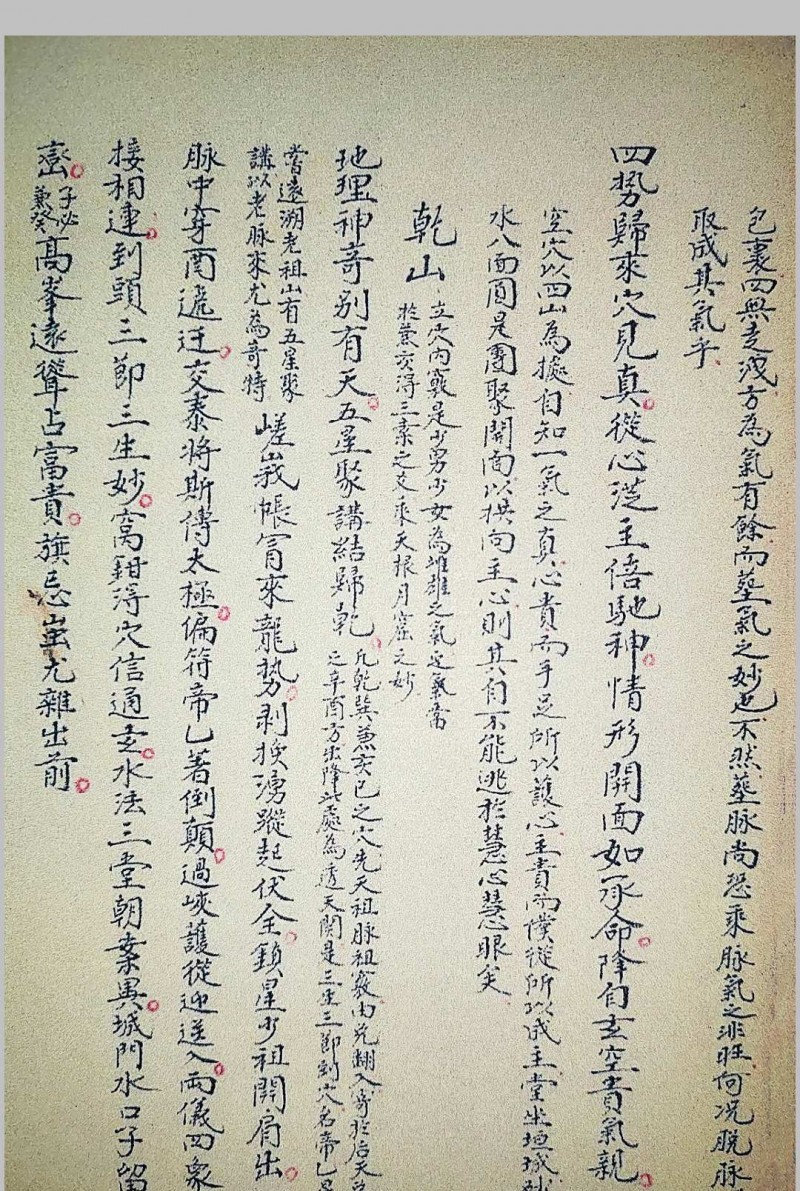 包裹四無走洩方為氣有餘而塟氣之妙也不然塟脉尚恐乘脉氣之非旺何况脱脉
取成其氣乎
四势歸來穴見真從心從主倍馳神情形開面如承命降自玄空貴氣親
空穴以四山為據自知一氣之真心貴而手足所以護心主貴而僕從所以成主堂坐垣城砂
水八面圓是團聚開面以拱向主心則其自不能逃於慧心慧眼矣
乾山
立穴内竅是少男少女為雌雄之氣迎氣當
於兼亥淂三素之支乘天根月窟之妙
地理神竒别有天五星聚講結歸乾
凡乾巽兼亥巳之穴先天祖脉祖竅由兌翻入寄於后天
之辛酉方出降此處為透天関是三生三節到穴名帝乙是
嘗遠溯老祖山有五星聚
講以老脉來尤為竒特
嵯峩帳冐來龍势剥換湧蹤起伏全鎮星少祖開肩出
脉中穿酉逓迂交泰將斯傳太極偏符帝乙著倒顛過峽護從迎送入兩儀四象
接相連到頭三節三生妙窩鉗淂穴信通玄水法三堂朝案異城門水口子留
巒
子必
兼癸
高峯遠聳占富貴旗忌蚩尤雜出前